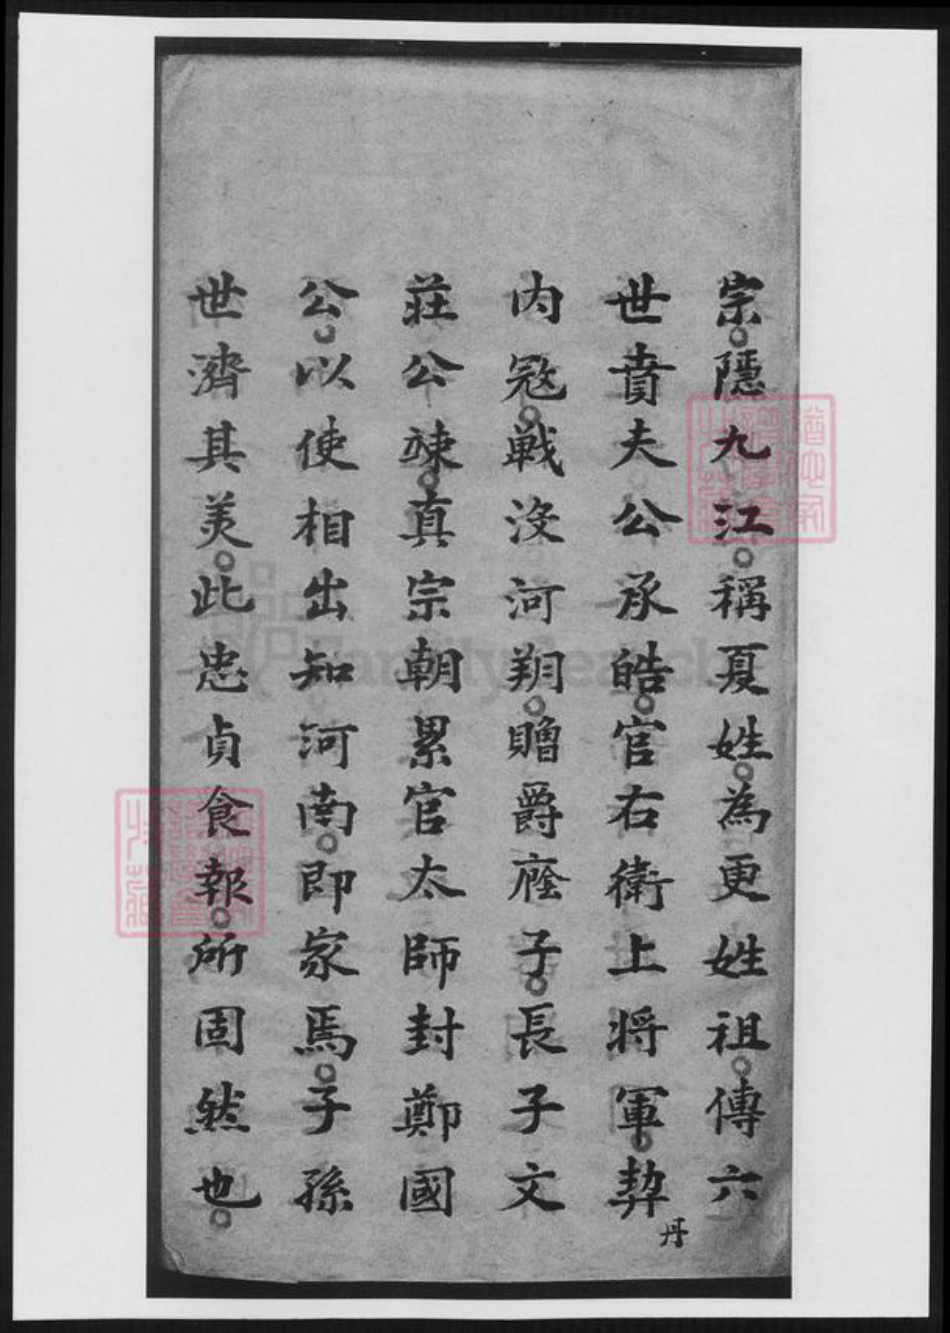 宗。隱九江。稱夏姓。為更姓祖。傳六
世賁夫公承皓。官右衛上將軍。契丹
内冦。戰沒河朔。贈爵廕子。長子文
莊公竦。真宗朝累官太師封鄭國
公。以使相出知河南。即家焉。子孫
世濟其羙。此忠貞食報。所固然也。